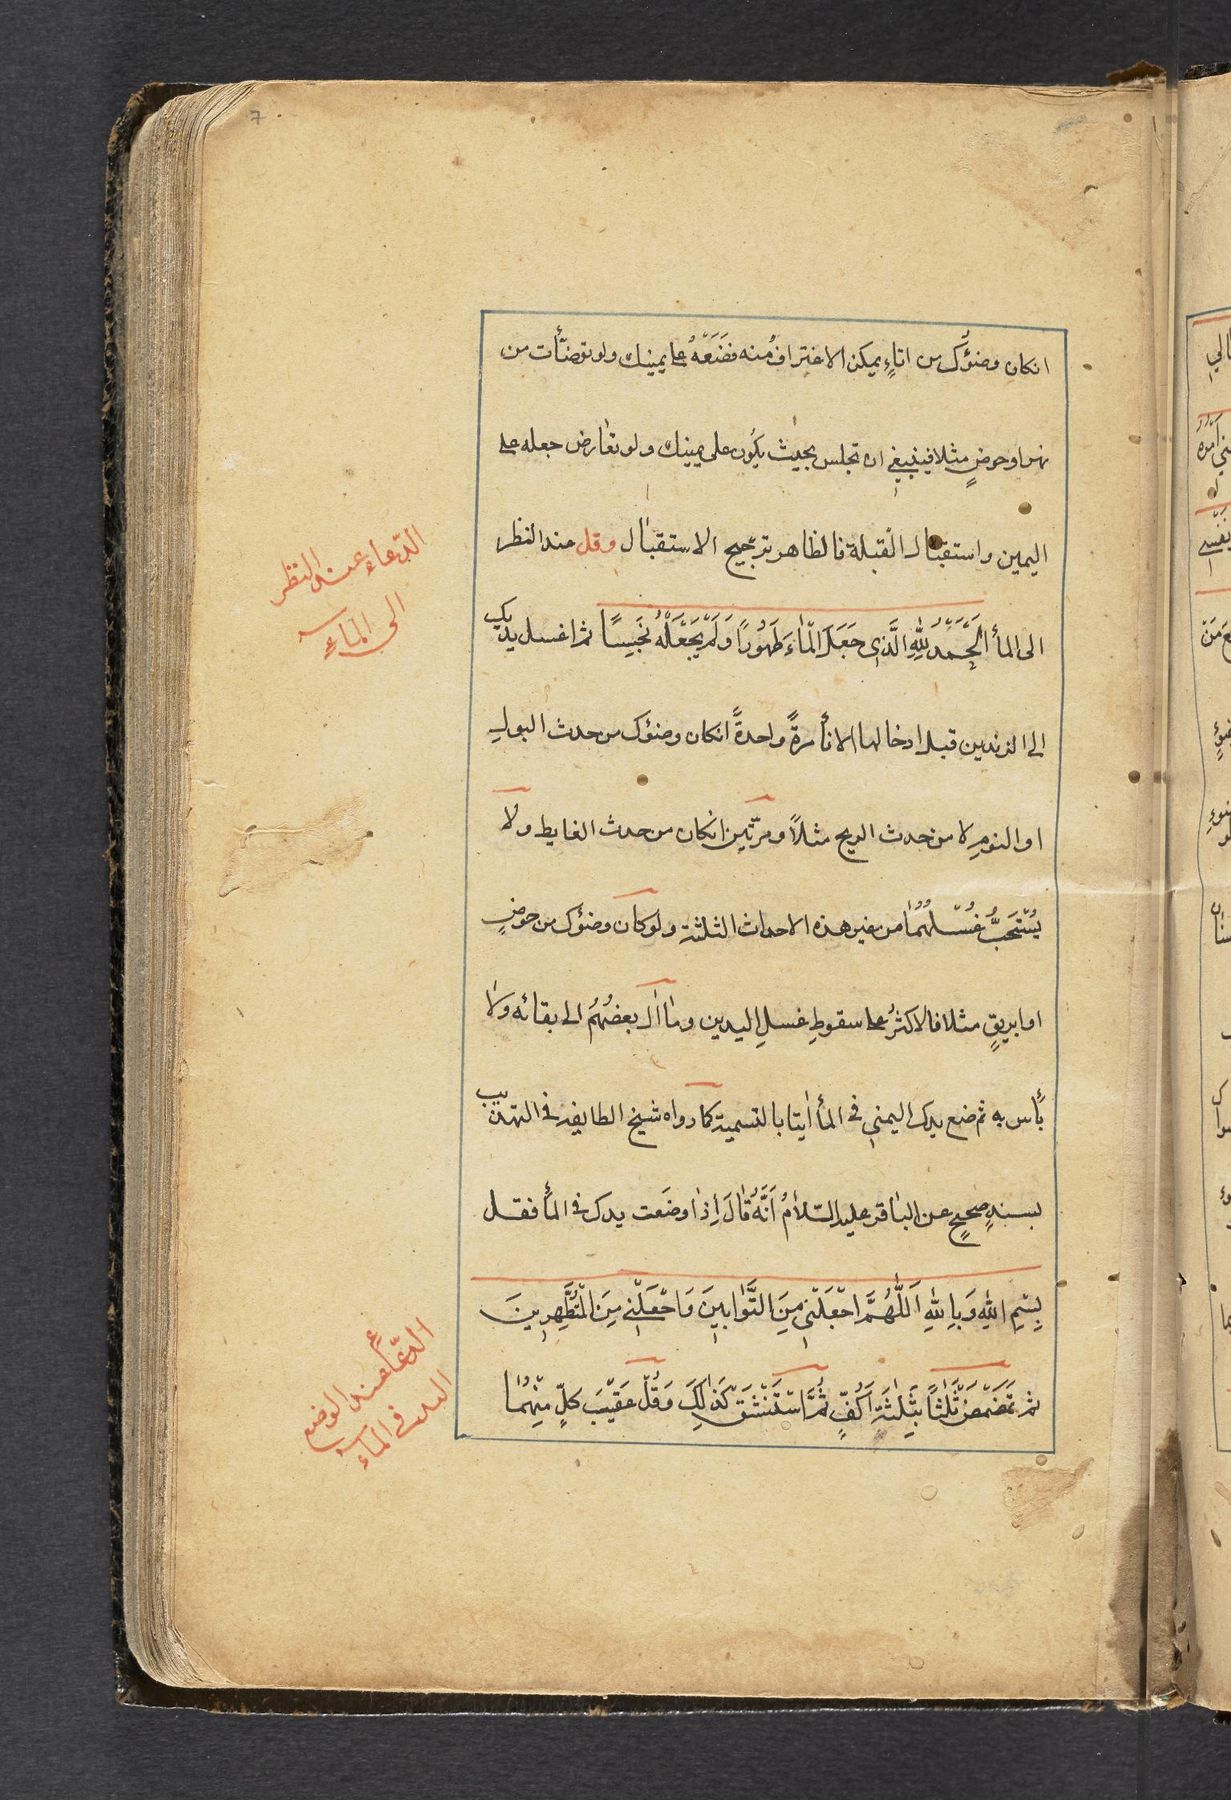 انكان وضؤُك من اناءٍ يمكن الاغترافُ منه فَضَعْهُ على يمينك ولو توضأت من
نهر او حوضٍ مثلا فينبغي ان تجلس بحيث يكون على يمينك ولو تعارض جعله على
اليمين واستقبال القبلة فالظاهر ترجيح الاستقبال وقل عند النظر
الى المأ اَلْحَمْدُ لِلّٰهِ الَّذى جَعَلَ الْمٰاءَ طَهُورًا وَلَمْ يَجْعَلْهُ نَجِسًا ثم اغسل يديك
الى الزندين قبل ادخالها الانأ مرةً واحدةً انكان وضوئك من حدث البول
او النوم لا من حدث الريح مثلاً ومرّتين انكان من حدث الغايط ولا
يُسْتَحَبُّ غُسْلُهُمٰا من غير هذه الاحداث الثلثة ولو كان وضوئك من حوضٍ
او ابريقٍ مثلا فالاكثرُ على سقوطِ غسلِ اليدين ومٰال بعضُهُم الى بقائه ولا
بأس به ثم ضع يدك اليمنى في المأ اٰتيا بالتسمية كما رواه شيخ الطايفة في التهذيب
بسندٍ صحيحٍ عن البٰاقر عليه السّلٰامُ اَنَّهُ قٰالَ اِذٰا وضَعت يدك في المأ فقل
بِسْمِ اللّٰهِ وَبِاللّٰهِ اَللّٰهُمَّ اجْعَلْنى مِنَ التَّوّٰابينَ وَاجْعَلْنى مِنَ الْمُتَطَهِّرينَ
ثم تَمَضْمَضْ ثَلٰثًا بِثَلٰثَةِ اَكُفٍّ ثُمَّ اسْتَنْشِقْ كَذٰلِكَ وَقُلْ عَقيبَ كلٍّ مِنْهُمٰا
الدّعاء عند النظر
الى الماء
الدعأ عند الوضع
اليد في الماء
7